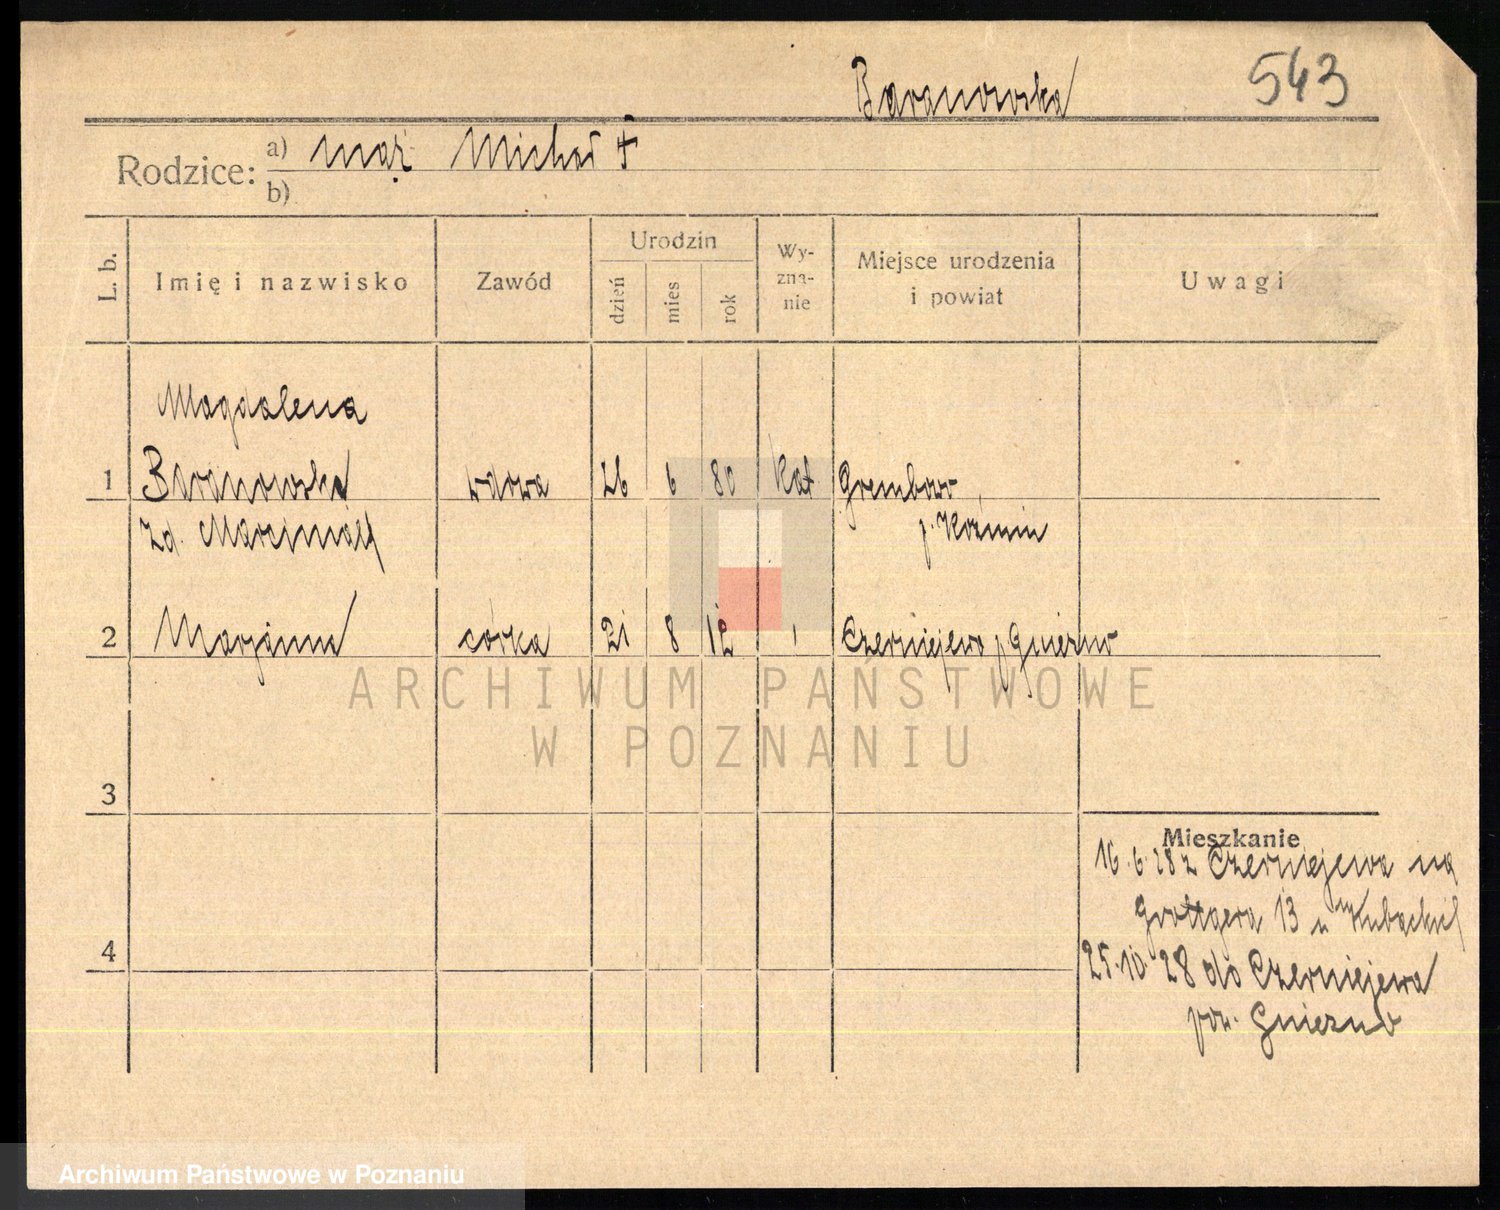 Baranowska
543
Rodzice:
a) mąż Michał †
b)
L. b.
Imię i nazwisko
Zawód
Urodzin
dzień
mies
rok
Wy-
zna-
nie
Miejsce urodzenia
i powiat
Uwagi
Magdalena
1 Baranowska wdowa 26 6 80 Kat Grembowo,
zd. p. Koźmin
2 Marjanna córka 21 8 12 " Czerniejewo p. Gniezno
ARCHIWUM PAŃSTWOWE
W POZNANIU
3
Mieszkanie
16.6.28 z Czerniejewa na
Grottgera 13 u
4
25.10.28 do Czerniejewa
pow. Gniezno
Archiwum Państwowe w Poznaniu